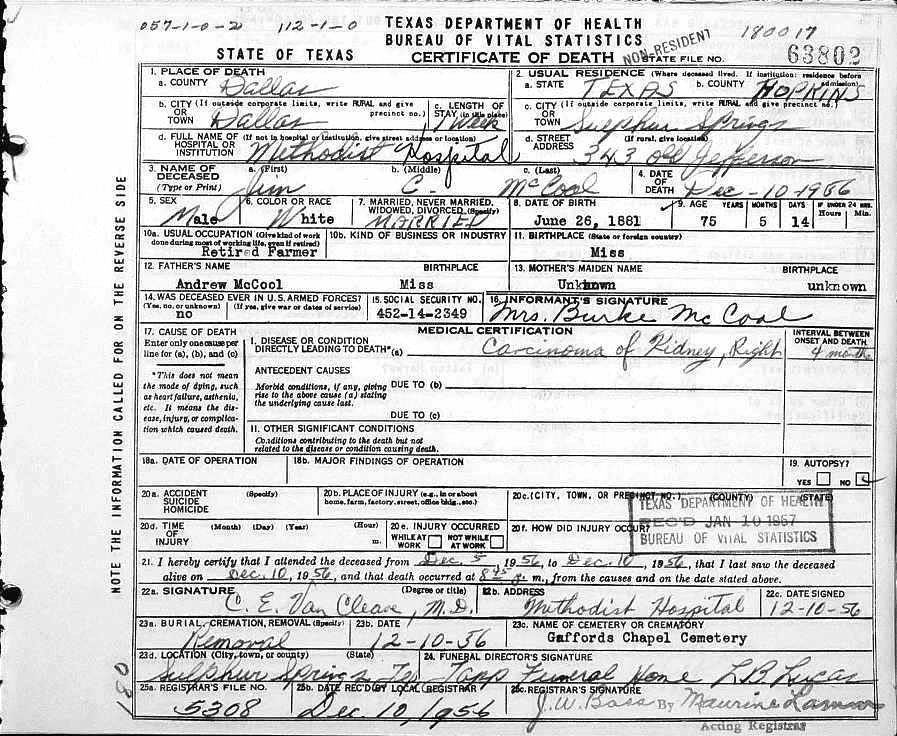 057-1-0-2 112-1-0 TEXAS DEPARTMENT OF HEALTH 180017
BUREAU OF VITAL STATISTICS
STATE OF TEXAS CERTIFICATE OF DEATH NON-RESIDENT STATE FILE NO. 63802
1. PLACE OF DEATH 2. USUAL RESIDENCE (Where deceased lived. If institution: residence before admission)
a. COUNTY Dallas a. STATE TEXAS b. COUNTY HOPKINS
b. CITY (If outside corporate limits, write RURAL and give precinct no.) OR TOWN Dallas c. LENGTH OF STAY (in this place) 1 Week c. CITY (If outside corporate limits, write RURAL and give precinct no.) OR TOWN Sulphur Springs
d. FULL NAME OF (If not in hospital or institution, give street address or location) HOSPITAL OR INSTITUTION Methodist Hospital d. STREET ADDRESS (If rural, give location) 343 Old Jefferson
3. NAME OF DECEASED (Type or Print) a. (First) Jim b. (Middle) C. c. (Last) McCool 4. DATE OF DEATH Dec-10-1956
5. SEX Male 6. COLOR OR RACE White 7. MARRIED, NEVER MARRIED, WIDOWED, DIVORCED (Specify) MARRIED 8. DATE OF BIRTH June 26, 1881 9. AGE YEARS 75 MONTHS 5 DAYS 14 IF UNDER 24 HRS. Hours Min.
10a. USUAL OCCUPATION (Give kind of work done during most of working life, even if retired) Retired Farmer 10b. KIND OF BUSINESS OR INDUSTRY 11. BIRTHPLACE (State or foreign country) Miss
12. FATHER'S NAME Andrew McCool BIRTHPLACE Miss 13. MOTHER'S MAIDEN NAME Unknown BIRTHPLACE unknown
14. WAS DECEASED EVER IN U.S. ARMED FORCES? (Yes, no, or unknown) no (If yes, give war or dates of service) 15. SOCIAL SECURITY NO. 452-14-2349 16. INFORMANT'S SIGNATURE Mrs. Burke McCool
MEDICAL CERTIFICATION
17. CAUSE OF DEATH Enter only one cause per line for (a), (b), and (c)
*This does not mean the mode of dying, such as heart failure, asthenia, etc. It means the disease, injury, or complication which caused death.
I. DISEASE OR CONDITION DIRECTLY LEADING TO DEATH* (a) Carcinoma of Kidney, Right INTERVAL BETWEEN ONSET AND DEATH 4 months
ANTECEDENT CAUSES
Morbid conditions, if any, giving rise to the above cause (a) stating the underlying cause last. DUE TO (b)
DUE TO (c)
II. OTHER SIGNIFICANT CONDITIONS
Conditions contributing to the death but not related to the disease or condition causing death.
18a. DATE OF OPERATION 18b. MAJOR FINDINGS OF OPERATION 19. AUTOPSY? YES NO
20a. ACCIDENT SUICIDE HOMICIDE (Specify) 20b. PLACE OF INJURY (e.g., in or about home, farm, factory, street, office bldg., etc.) 20c. (CITY, TOWN, OR PRECINCT NO.) (COUNTY) (STATE)
TEXAS DEPARTMENT OF HEALTH
REC'D JAN 10 1957
BUREAU OF VITAL STATISTICS
20d. TIME OF INJURY (Month) (Day) (Year) (Hour) m. 20e. INJURY OCCURRED WHILE AT WORK NOT WHILE AT WORK 20f. HOW DID INJURY OCCUR?
21. I hereby certify that I attended the deceased from Dec. 5, 1956, to Dec. 10, 1956, that I last saw the deceased
alive on Dec. 10, 1956, and that death occurred at 8:45 m., from the causes and on the date stated above.
22a. SIGNATURE (Degree or title) C. E. Van Cleave, M.D. 22b. ADDRESS Methodist Hospital 22c. DATE SIGNED 12-10-56
23a. BURIAL, CREMATION, REMOVAL (Specify) Removal 23b. DATE 12-10-56 23c. NAME OF CEMETERY OR CREMATORY Gaffords Chapel Cemetery
23d. LOCATION (City, town, or county) (State) Sulphur Springs Tex 24. FUNERAL DIRECTOR'S SIGNATURE Tapp Funeral Home L.B. Lucas
25a. REGISTRAR'S FILE NO. 5308 25b. DATE REC'D BY LOCAL REGISTRAR Dec. 10, 1956 25c. REGISTRAR'S SIGNATURE J.W. Bass By Maurine
Acting Registrar
NOTE THE INFORMATION CALLED FOR ON THE REVERSE SIDE
180